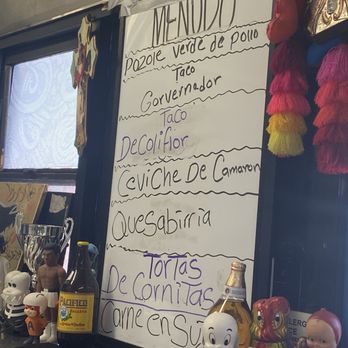 MENUDO
Pozole verde de pollo
Taco
Gorvernador
Taco
DeColiflor
Ceviche De Camaron
Quesabirria
Tortas
De Carnitas
Carne en Su
PACIFICO